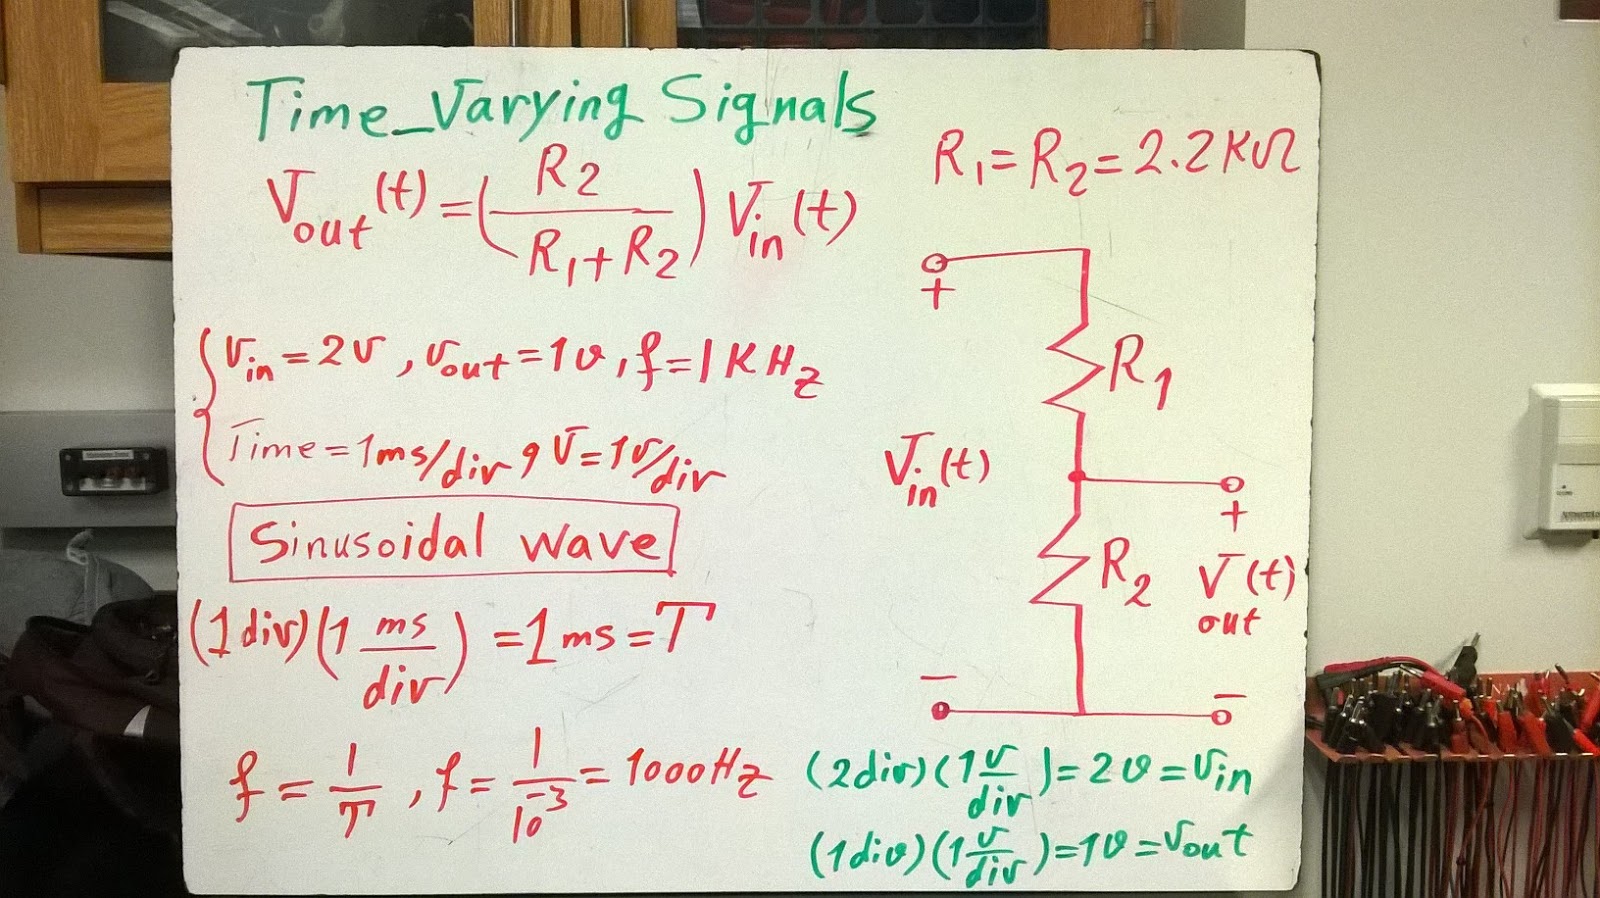 Time_Varying Signals
Vout(t) = (R2 / (R1+R2)) Vin(t)
R1 = R2 = 2.2KΩ
Vin = 2V, Vout = 1V, f = 1KHz
Time = 1ms/div, V = 1V/div
Sinusoidal wave
(1div)(1 ms/div) = 1ms = T
f = 1/T, f = 1/10^-3 = 1000Hz
+
R1
Vin(t)
+
R2
Vout(t)
−
−
(2div)(1 V/div) = 2V = Vin
(1div)(1 V/div) = 1V = Vout